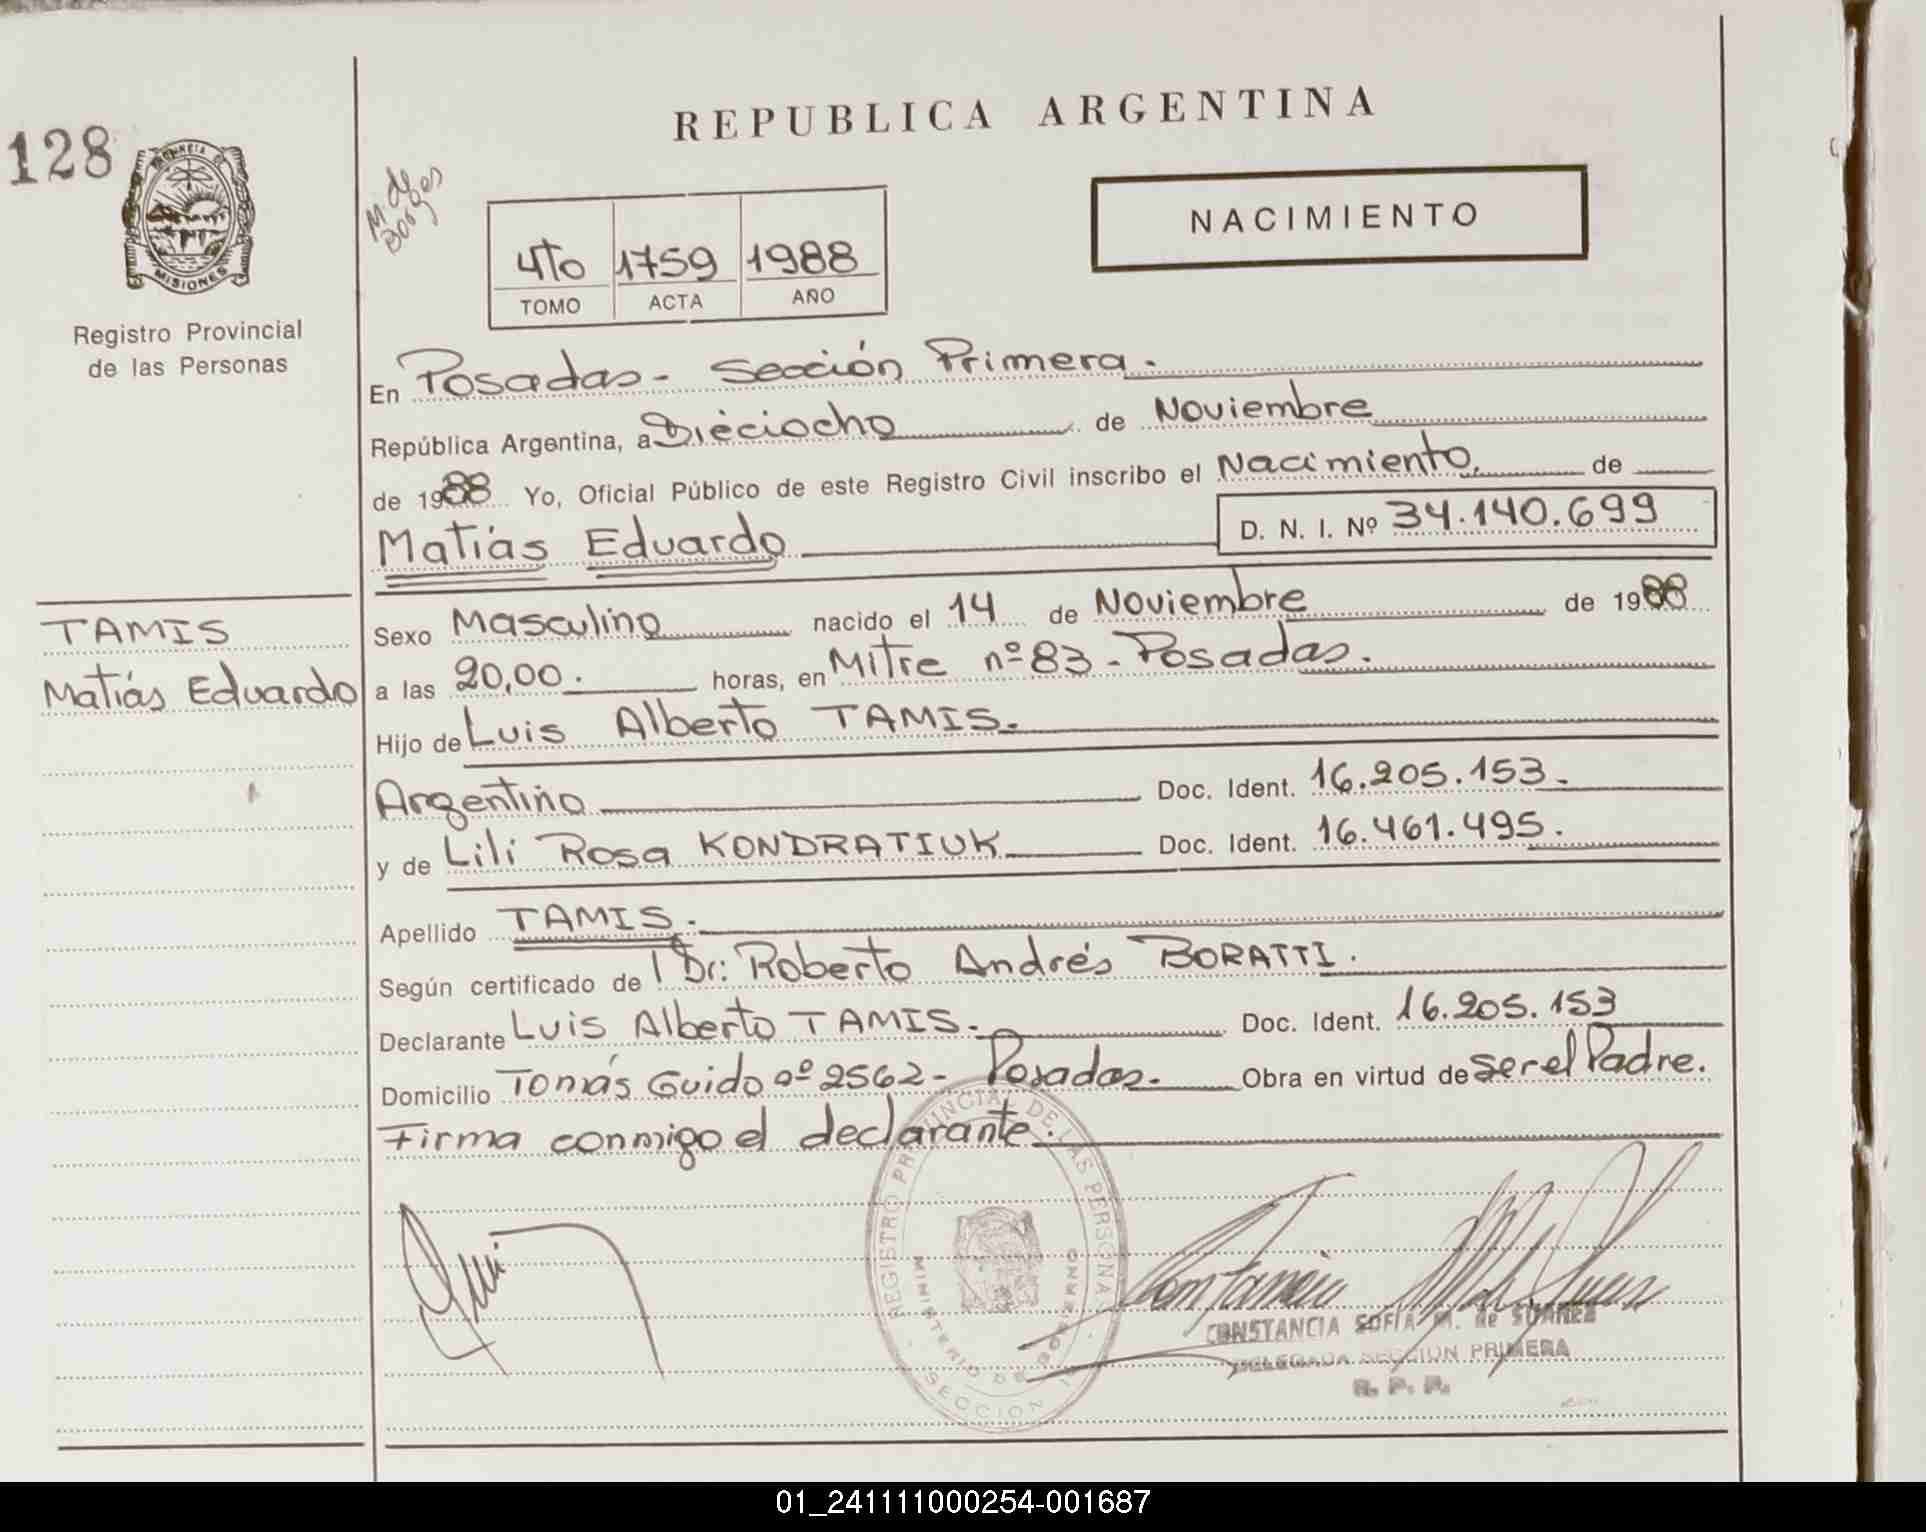 REPUBLICA ARGENTINA
128
PROVINCIA DE
MISIONES
Registro Provincial
de las Personas
M. de
Borges
NACIMIENTO
4to 1759 1988
TOMO ACTA AÑO
En Posadas - Sección Primera.
República Argentina, a Dieciocho de Noviembre
de 1988 Yo, Oficial Público de este Registro Civil inscribo el Nacimiento. de
Matías Eduardo D. N. I. Nº 34.140.699
TAMIS
Matías Eduardo
Sexo Masculino nacido el 14 de Noviembre de 1988
a las 20,00. horas, en Mitre nº 83 - Posadas.
Hijo de Luis Alberto TAMIS.
Argentino Doc. Ident. 16.205.153.
y de Lili Rosa KONDRATIUK Doc. Ident. 16.461.495.
Apellido TAMIS.
Según certificado de Dr: Roberto Andrés BORATTI.
Declarante Luis Alberto TAMIS. Doc. Ident. 16.205.153
Domicilio Tomás Guido nº 2562 - Posadas. Obra en virtud de ser el Padre.
Firma conmigo el declarante.
REGISTRO PROVINCIAL DE LAS PERSONAS
MINISTERIO DE GOBIERNO
SECCION
CONSTANCIA SOFIA M. de SUAREZ
DELEGADA SECCION PRIMERA
R. P. P.
01_241111000254-001687